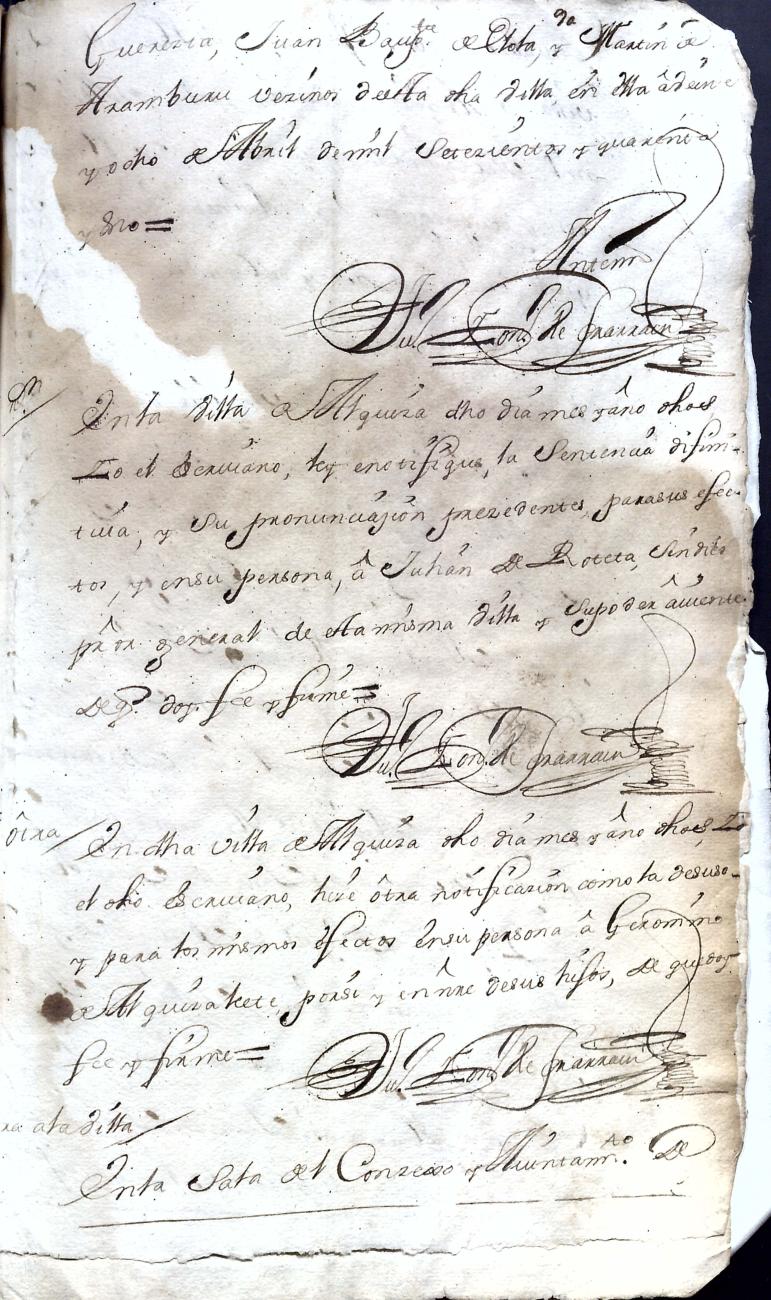 Juan Baup.ta de Elola, y Martin de
Aramburu vezinos de esta dha villa, en ella â
y ocho de Abril de mil setezientos y quarenta
y uno =
Antemi
de Yrarrain
En la villa de Alquiza dho dia mes y año dhos
Yo el Scriuano, ley e notifique, la Sentencia difini-
tiua, y su pronunciazion prezedentes, para sus efec-
tos, y en su persona, â Juhan de Roteta, Sindico
pr̂or general de esta misma villa y su poder âuiente
De q.e doy fee y firme =
de Yrarrain
ôtra / En dha villa de Alquiza dho dia mes y año dhos, Yo
el dho Scriuano, hize ôtra notificazion como la de suso-
y para los mismos efectos en su persona â Geronimo
de Alquizalete, por si y en nr̂e de sus hijos, de que doy
fee y firme =
de Yrarrain
a la villa /
En la Sala del Conzexo y Aiuntam.to De